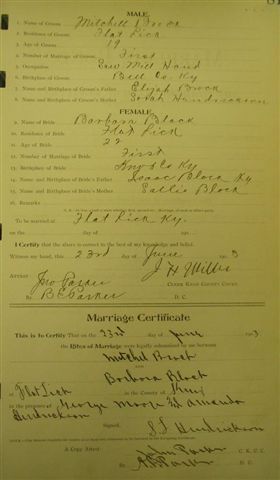 MALE.
1. Name of Groom Mitchell Brock
2. Residence of Groom Flat Lick
3. Age of Groom 19
4. Number of Marriage of Groom First
5. Occupation Saw Mill Hand
6. Birthplace of Groom Bell Co Ky
7. Name and Birthplace of Groom's Father Elijah Brock
8. Name and Birthplace of Groom's Mother Sarah Hendrickson
FEMALE.
9. Name of Bride Barbara Black
10. Residence of Bride Flat Lick
11. Age of Bride 22
12. Number of Marriage of Bride First
13. Birthplace of Bride Knox Co Ky
14. Name and Birthplace of Bride's Father Isaac Block Ky
15. Name and Birthplace of Bride's Mother Sallie Block
16. Remarks
To be married at Flat Lick Ky.
on the day of 191
I Certify that the above is correct to the best of my knowledge and belief.
Witness my hand, this 23rd day of June 3
J H
Attest: CLERK KNOX COUNTY COURT.
Jno Parker
By B E Parker D. C.
Marriage Certificate
This is to Certify That on the 23rd day of June 1903
the Rites of Marriage were legally solemnized by me between
Mitchel Brock
and
Barbara Block
at Flat Lick in the County of Knox
in the presence of George Moore and Amanda
Hendrickson
Signed, S J Hendrickson
A Copy Attest: John Parker C. K. C. C.
Parker D. C.